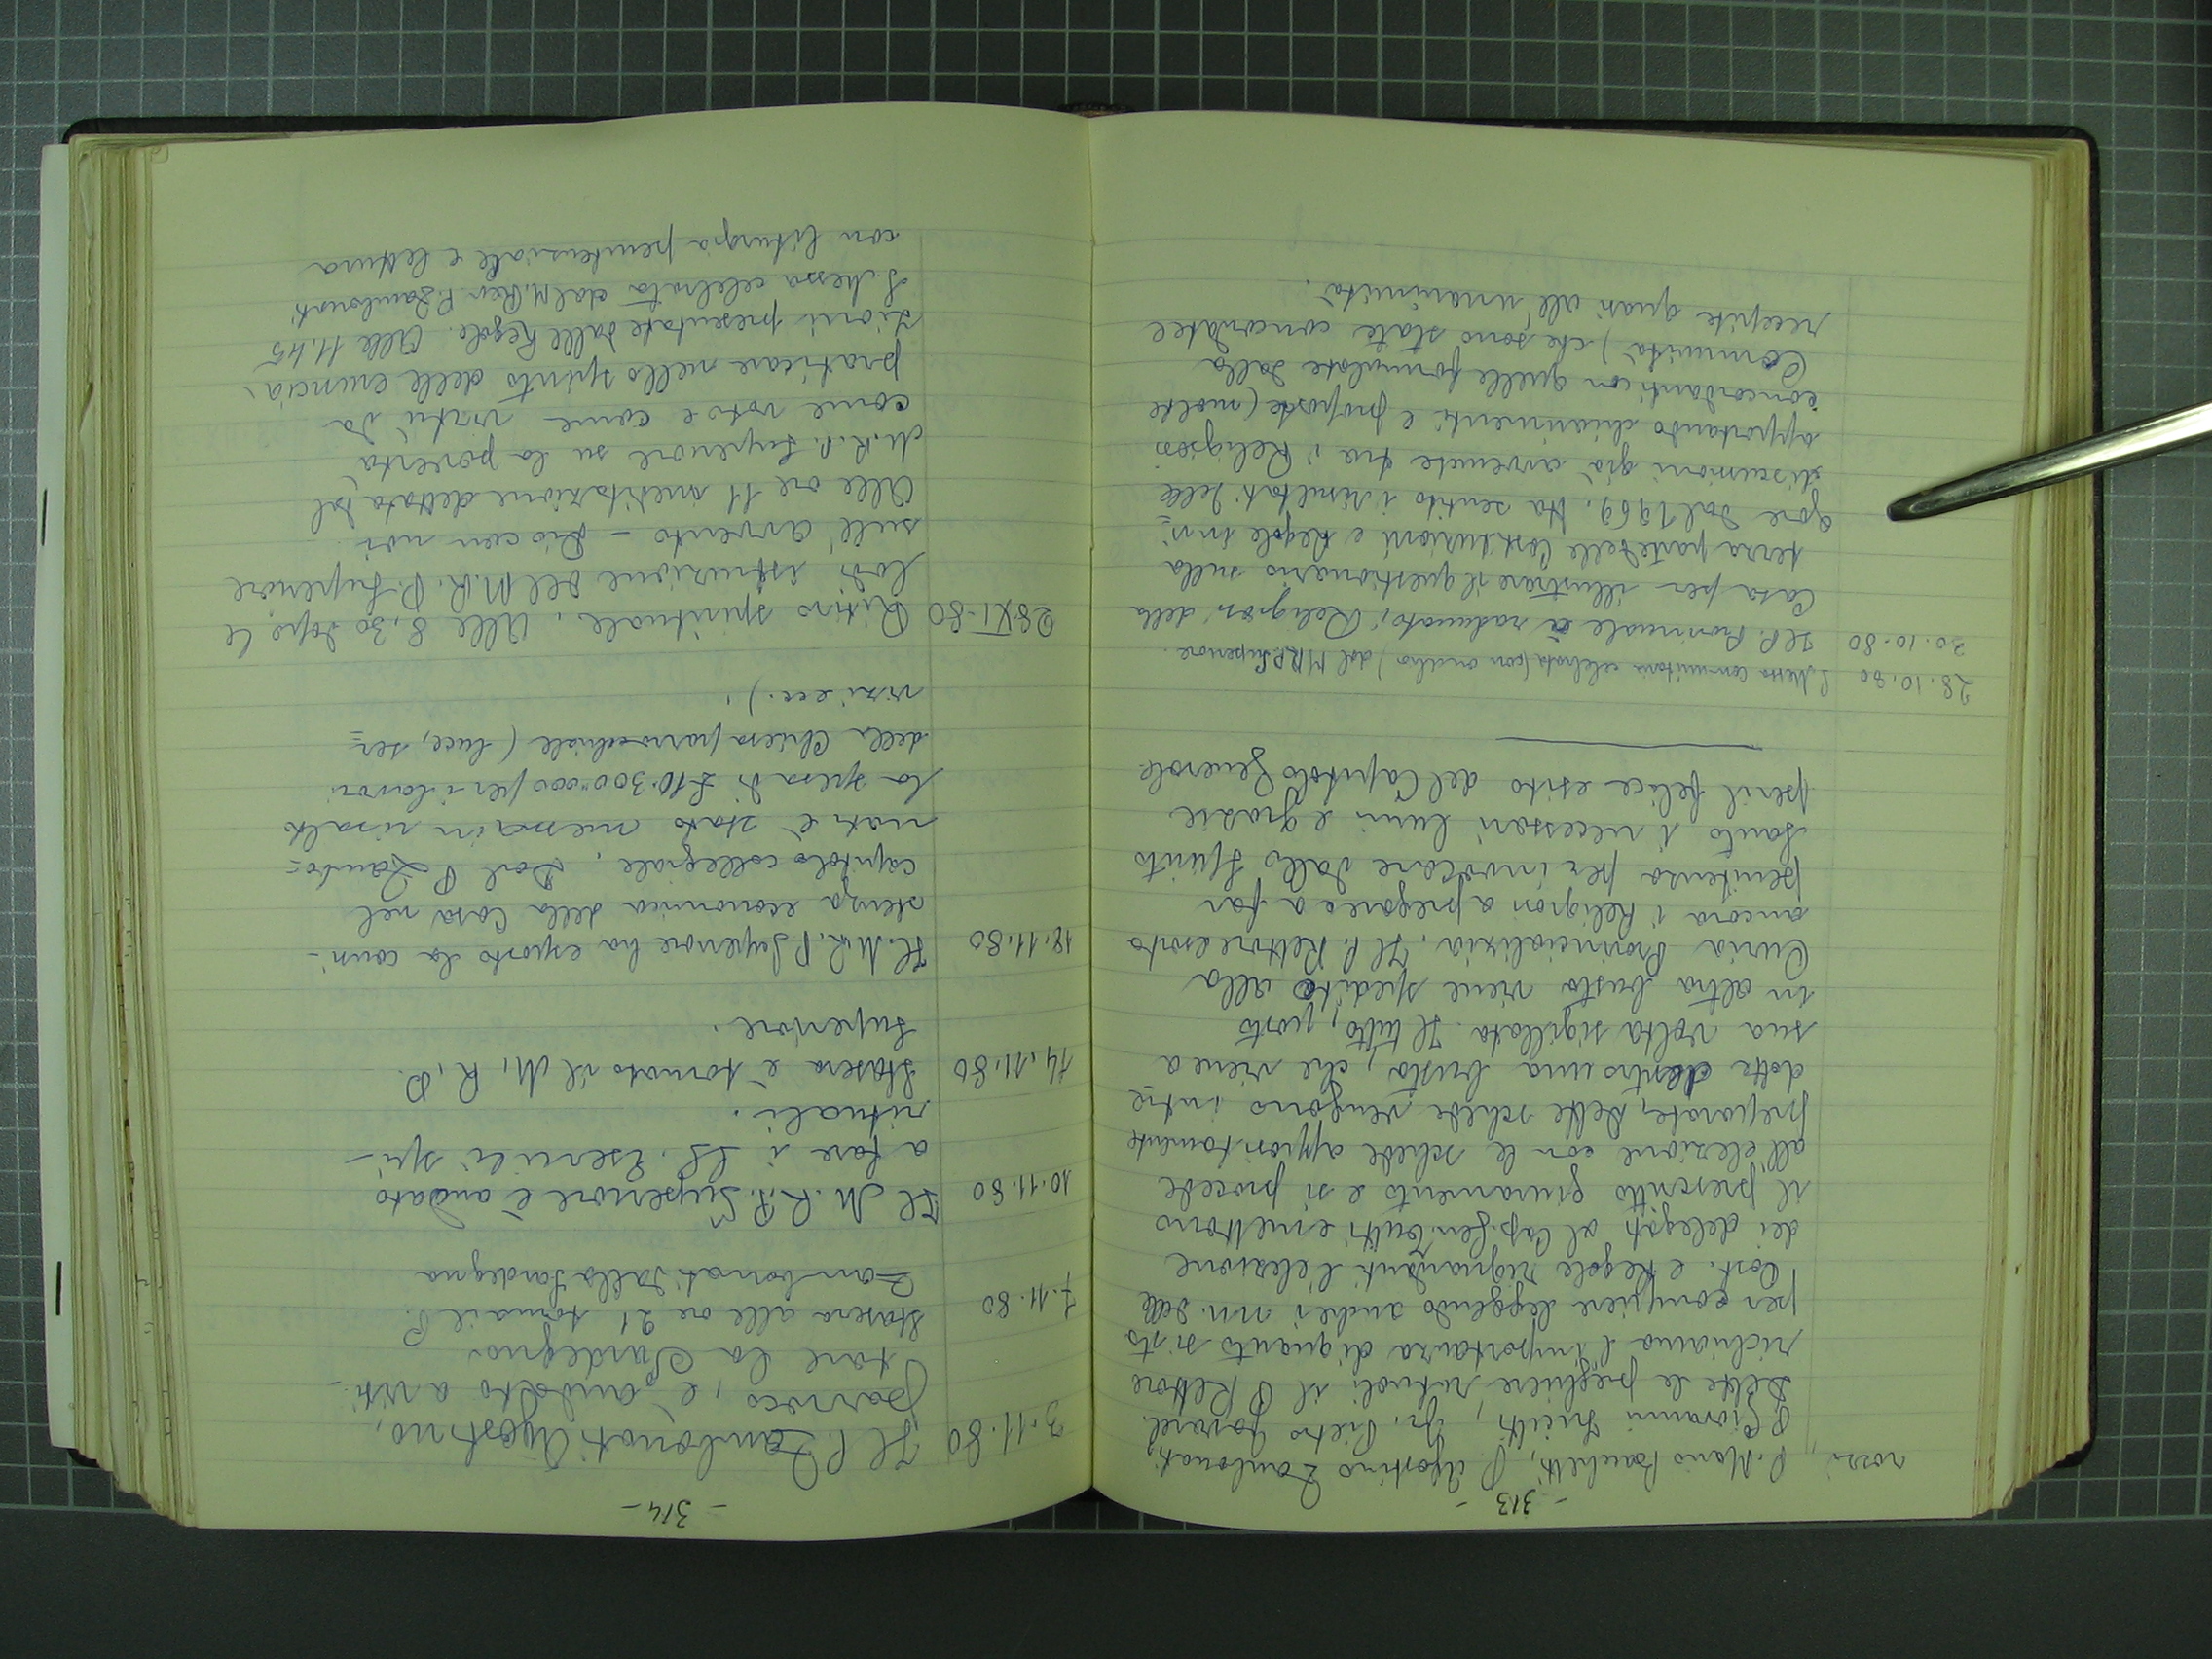 - 313 -
rossi, P. Mario Bacchetti, P. Agostino Zambonati,
P. Giovanni Triulzi, Fr. Pietro
Dette le preghiere rituali il P. Rettore
richiama l'importanza di quanto si sta
per compiere leggendo anche i nn. delle
Cost. e Regole riguardanti l'elezione
dei delegati al Cap. Gen. Tutti emettono
il prescritto giuramento e si procede
all'elezione con le schede appositamente
preparate, dette schede vengono intro=
dotte dentro una busta, che viene a
sua volta sigillata. Il tutto, posto
in altra busta viene spedito alla
Curia Provincializia. Il P. Rettore esorta
ancora i Religiosi a pregare e a far
penitenza per invocare dallo Spirito
Santo i necessari lumi e grazie
per il felice esito del Capitolo Generale
28.10.80 S. Messa comunitaria celebrata (con omelia) dal M.R.P. Superiore.
30.10.80 Il P. Provinciale ci raduna i Religiosi della
Casa per illustrare il questionario sulla
terza parte delle Costituzioni e Regole in vi=
gore dal 1969. Ha sentito i risultati delle
discussioni già avvenute tra i Religiosi
apportando chiarimenti e proposte (molte
concordanti con quelle formulate dalla
Comunità) che sono state concordate e
recepite quasi all'unanimità.
- 314 -
3.11.80 Il P. Zambonati Agostino,
parroco, è andato a visi-
tare la Sardegna
7.11.80 Stasera alle ore 21 torna il P.
Zambonati dalla Sardegna
10.11.80 Il M.R.P. Superiore è andato
a fare i SS. Esercizi spi-
rituali.
14.11.80 Stasera è tornato il M.R.P.
Superiore.
18.11.80 Il M.R.P. Superiore ha esposto la consi-
stenza economica della Casa nel
capitolo collegiale. Dal P. Zambo=
nati è stato messa in risalto
la spesa di £10.300.000 per i lavori
della Chiesa parrocchiale (luce, ser=
vizi ecc.).
28-XI-80 Ritiro spirituale. Alle 8,30 dopo le
lodi istruzione del M.R.P. Superiore
sull'avvento - Dio con noi.
Alle ore 11 meditazione dettata dal
M.R.P. Superiore su la povertà
come voto e come virtù da
praticare nello spirito delle enuncia=
zioni presentate dalle Regole. Alle 11.45
S. Messa celebrata dal M. Rev. P. Zambonati
con liturgia penitenziale e lettura